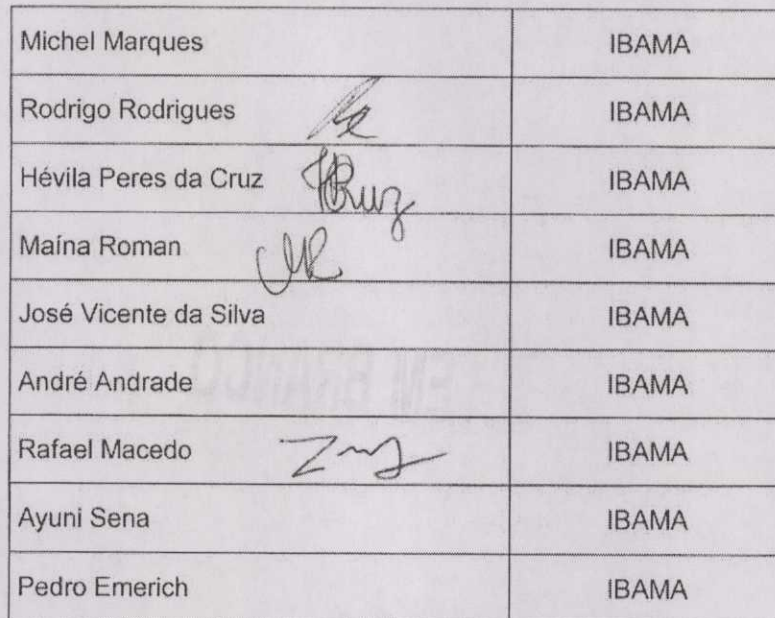 Michel Marques IBAMA
Rodrigo Rodrigues IBAMA
Hévila Peres da Cruz HCruz IBAMA
Maína Roman MR IBAMA
José Vicente da Silva IBAMA
André Andrade IBAMA
Rafael Macedo IBAMA
Ayuni Sena IBAMA
Pedro Emerich IBAMA
EM BRANCO